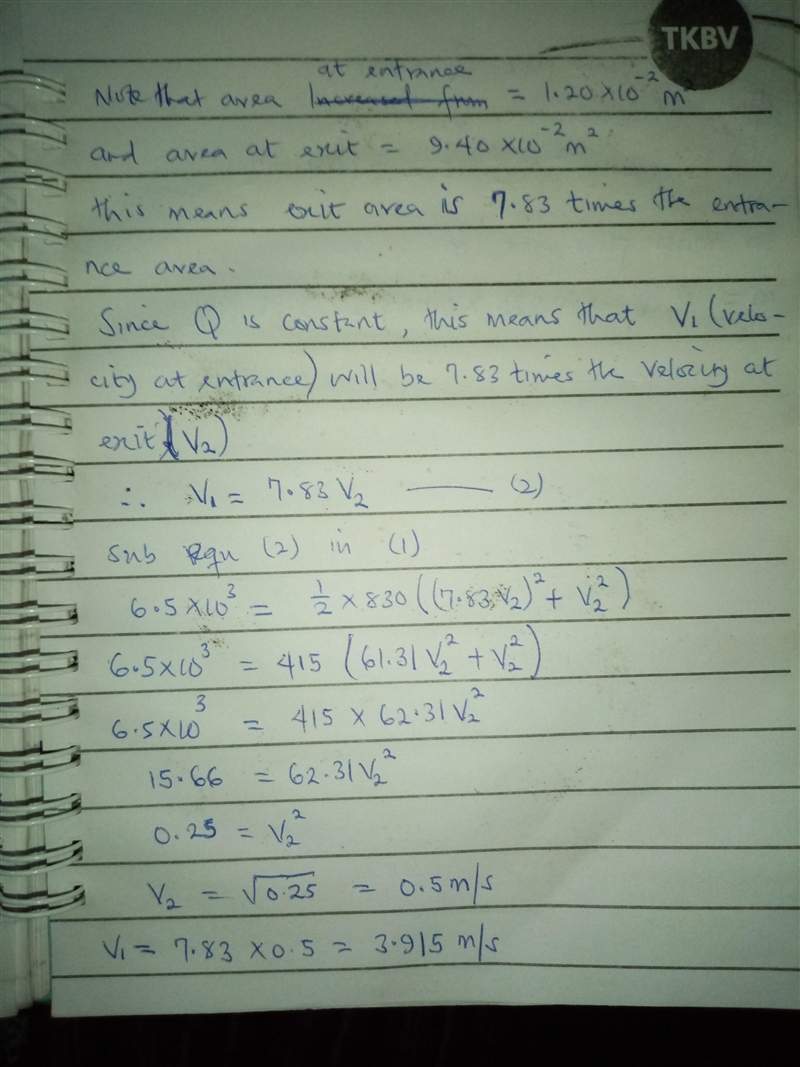 TKBV
at entrance
Note that area Increased from = 1.20 × 10⁻² m²
and area at exit = 9.40 × 10⁻² m²
this means exit area is 7.83 times the entra-
nce area.
Since Q is constant, this means that V₁ (velo-
city at entrance) will be 7.83 times the velocity at
exit (V₂)
∴ V₁ = 7.83 V₂ —— (2)
sub equ (2) in (1)
6.5 × 10³ = ½ × 830 ((7.83 V₂)² + V₂²)
6.5 × 10³ = 415 (61.31 V₂² + V₂²)
6.5 × 10³ = 415 × 62.31 V₂²
15.66 = 62.31 V₂²
0.25 = V₂²
V₂ = √0.25 = 0.5 m/s
V₁ = 7.83 × 0.5 = 3.915 m/s